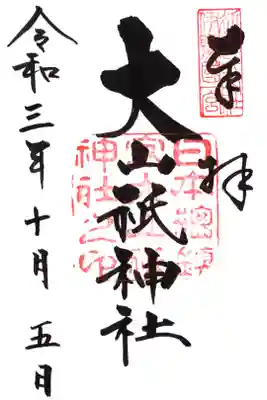 奉拝
大山祇神社
日本總鎮
神社之印
令和三年十月五日